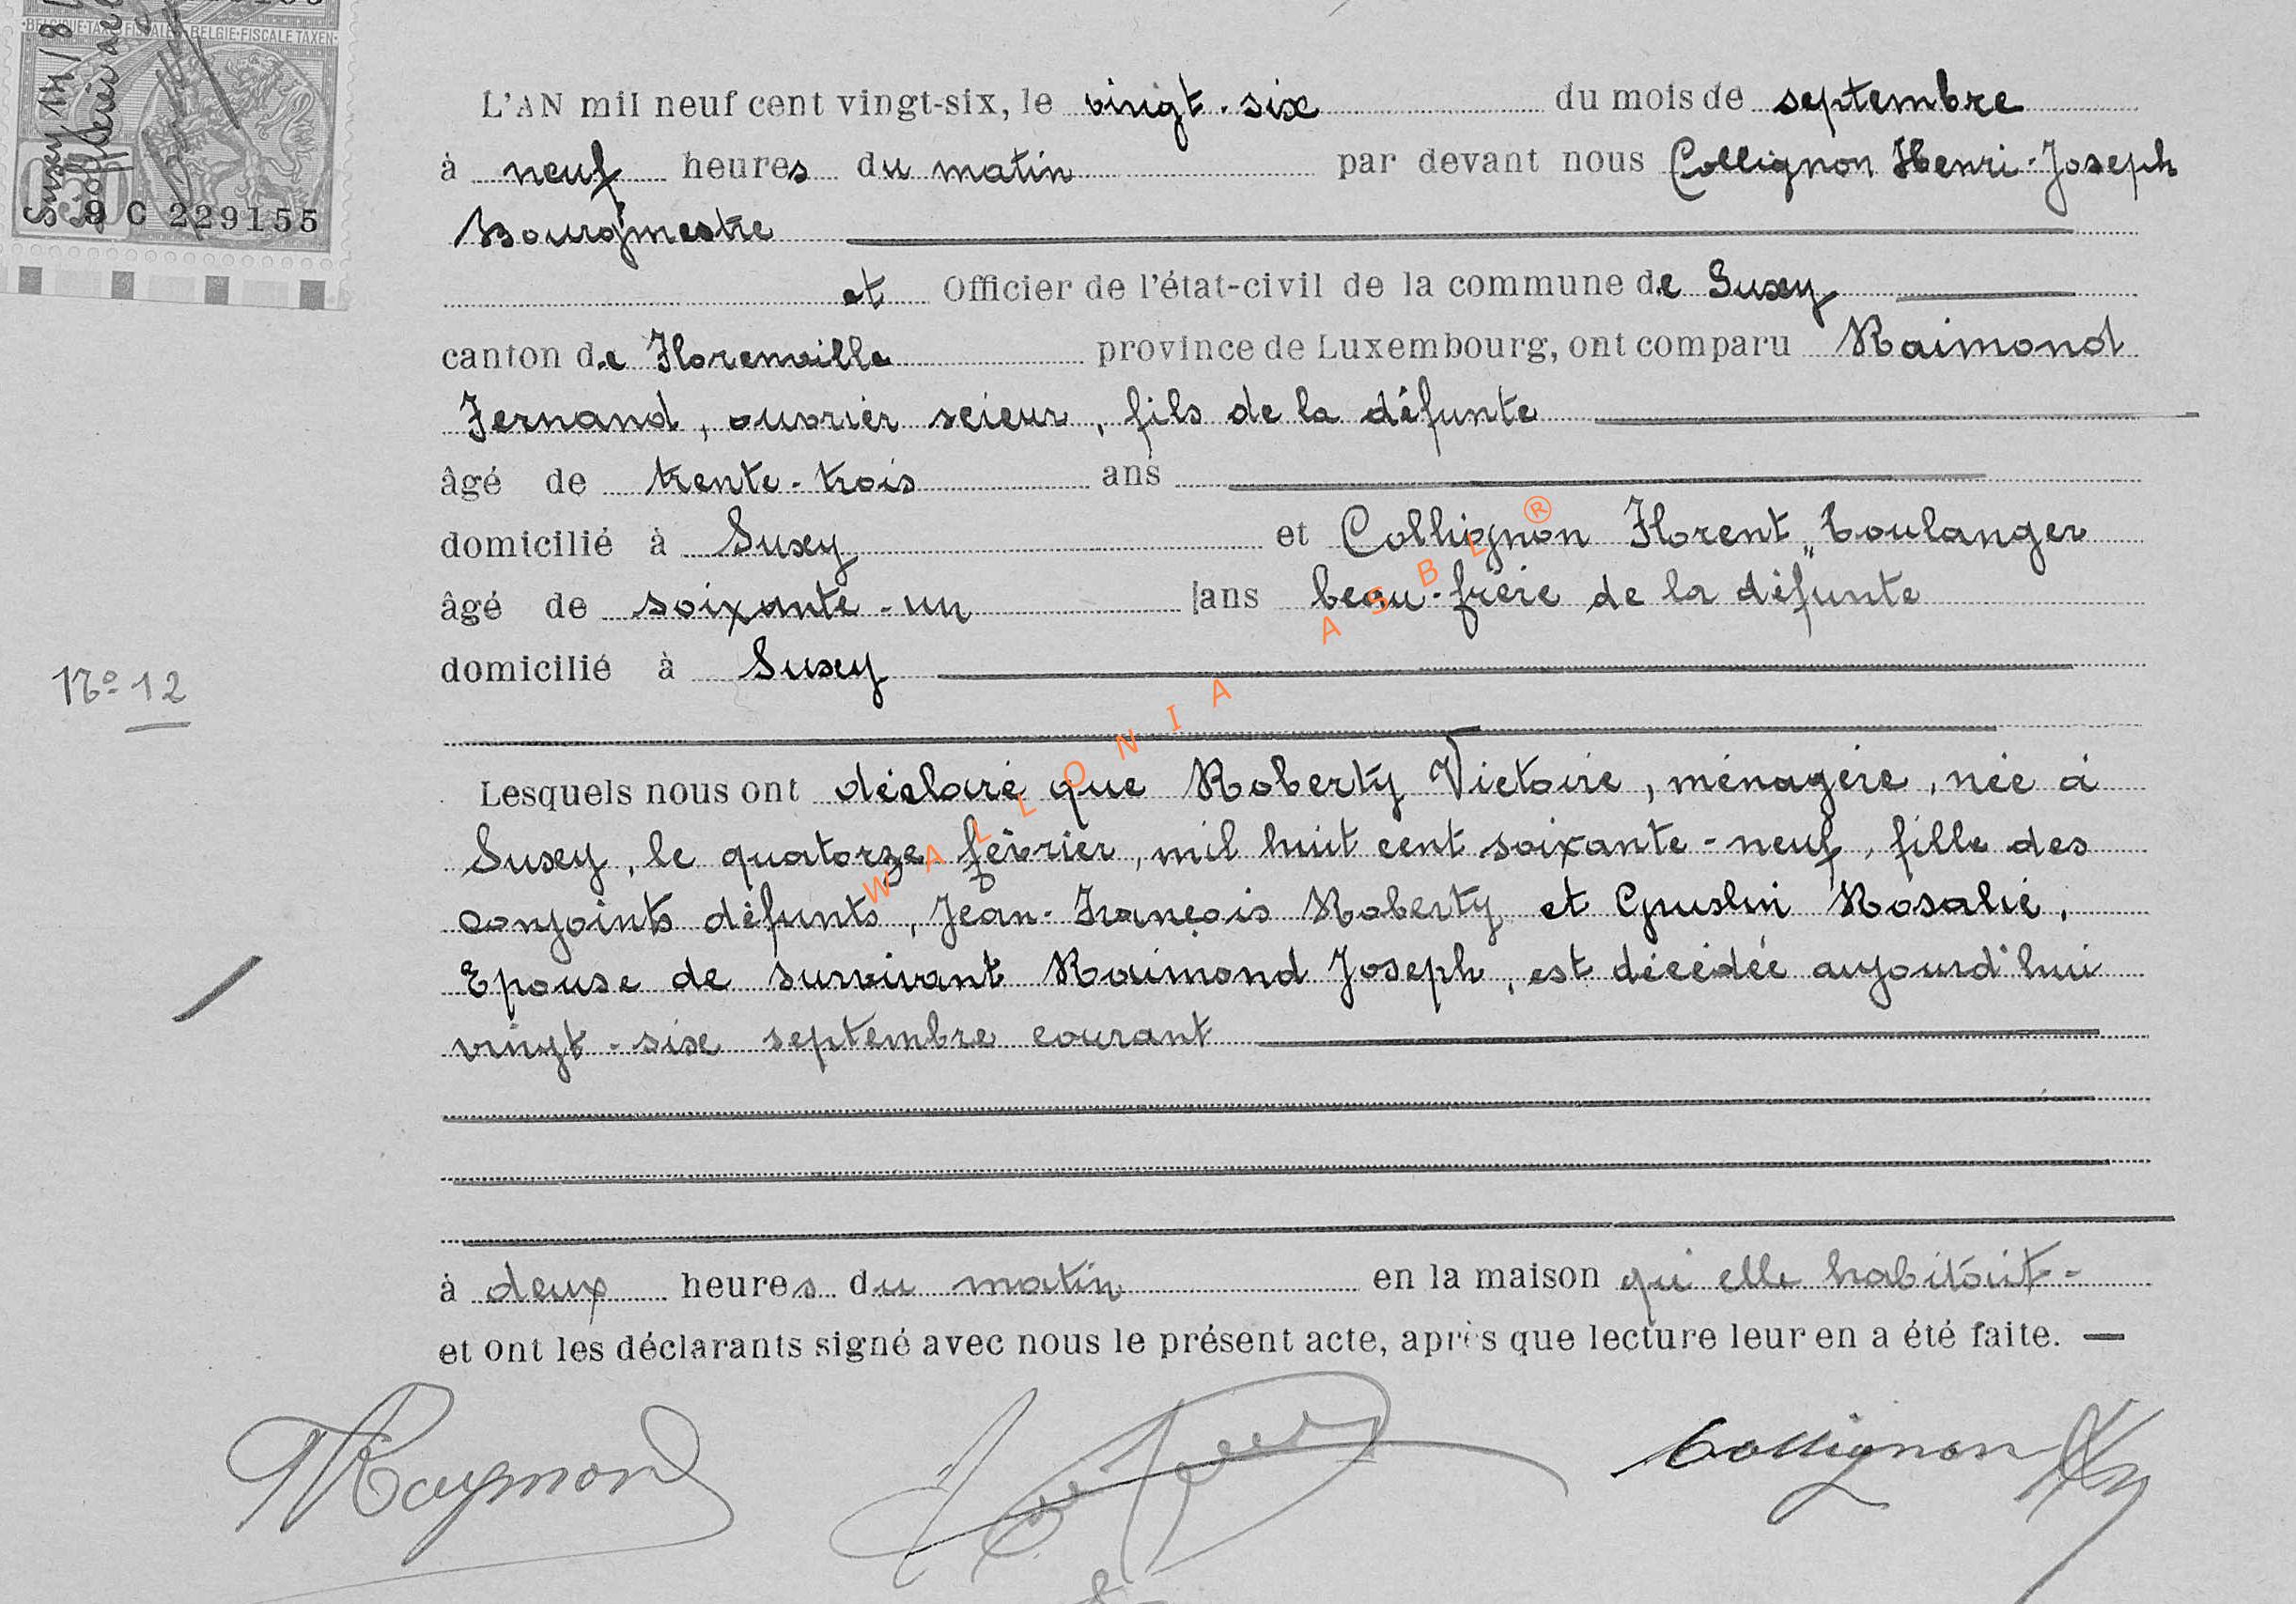 BELGIQUE·TAXES FISCALES·BELGIE·FISCALE TAXEN
Suxey 14/8
9 C 229155
L'AN mil neuf cent vingt-six, le vingt-six du mois de septembre
à neuf heures du matin par devant nous Collignon Henri-Joseph
Bourgmestre
et Officier de l'état-civil de la commune de Suxey
canton de Florenville province de Luxembourg, ont comparu Raimond
Fernand, ouvrier scieur, fils de la défunte
âgé de trente-trois ans
domicilié à Suxey et Collignon Florent, boulanger
âgé de soixante-un ans beau-frère de la défunte
domicilié à Suxey
N° 12
Lesquels nous ont déclaré que Roberty Victoire, ménagère, née à
Suxey, le quatorze février, mil huit cent soixante-neuf, fille des
conjoints défunts, Jean-François Roberty et Gruslin Rosalie,
Epouse de survivant Raimond Joseph, est décédée aujourd'hui
vingt-six septembre courant
à deux heures du matin en la maison qu'elle habitait-
et ont les déclarants signé avec nous le présent acte, après que lecture leur en a été faite. —
Raymond
Collignon
WALLONIA ASBL ®